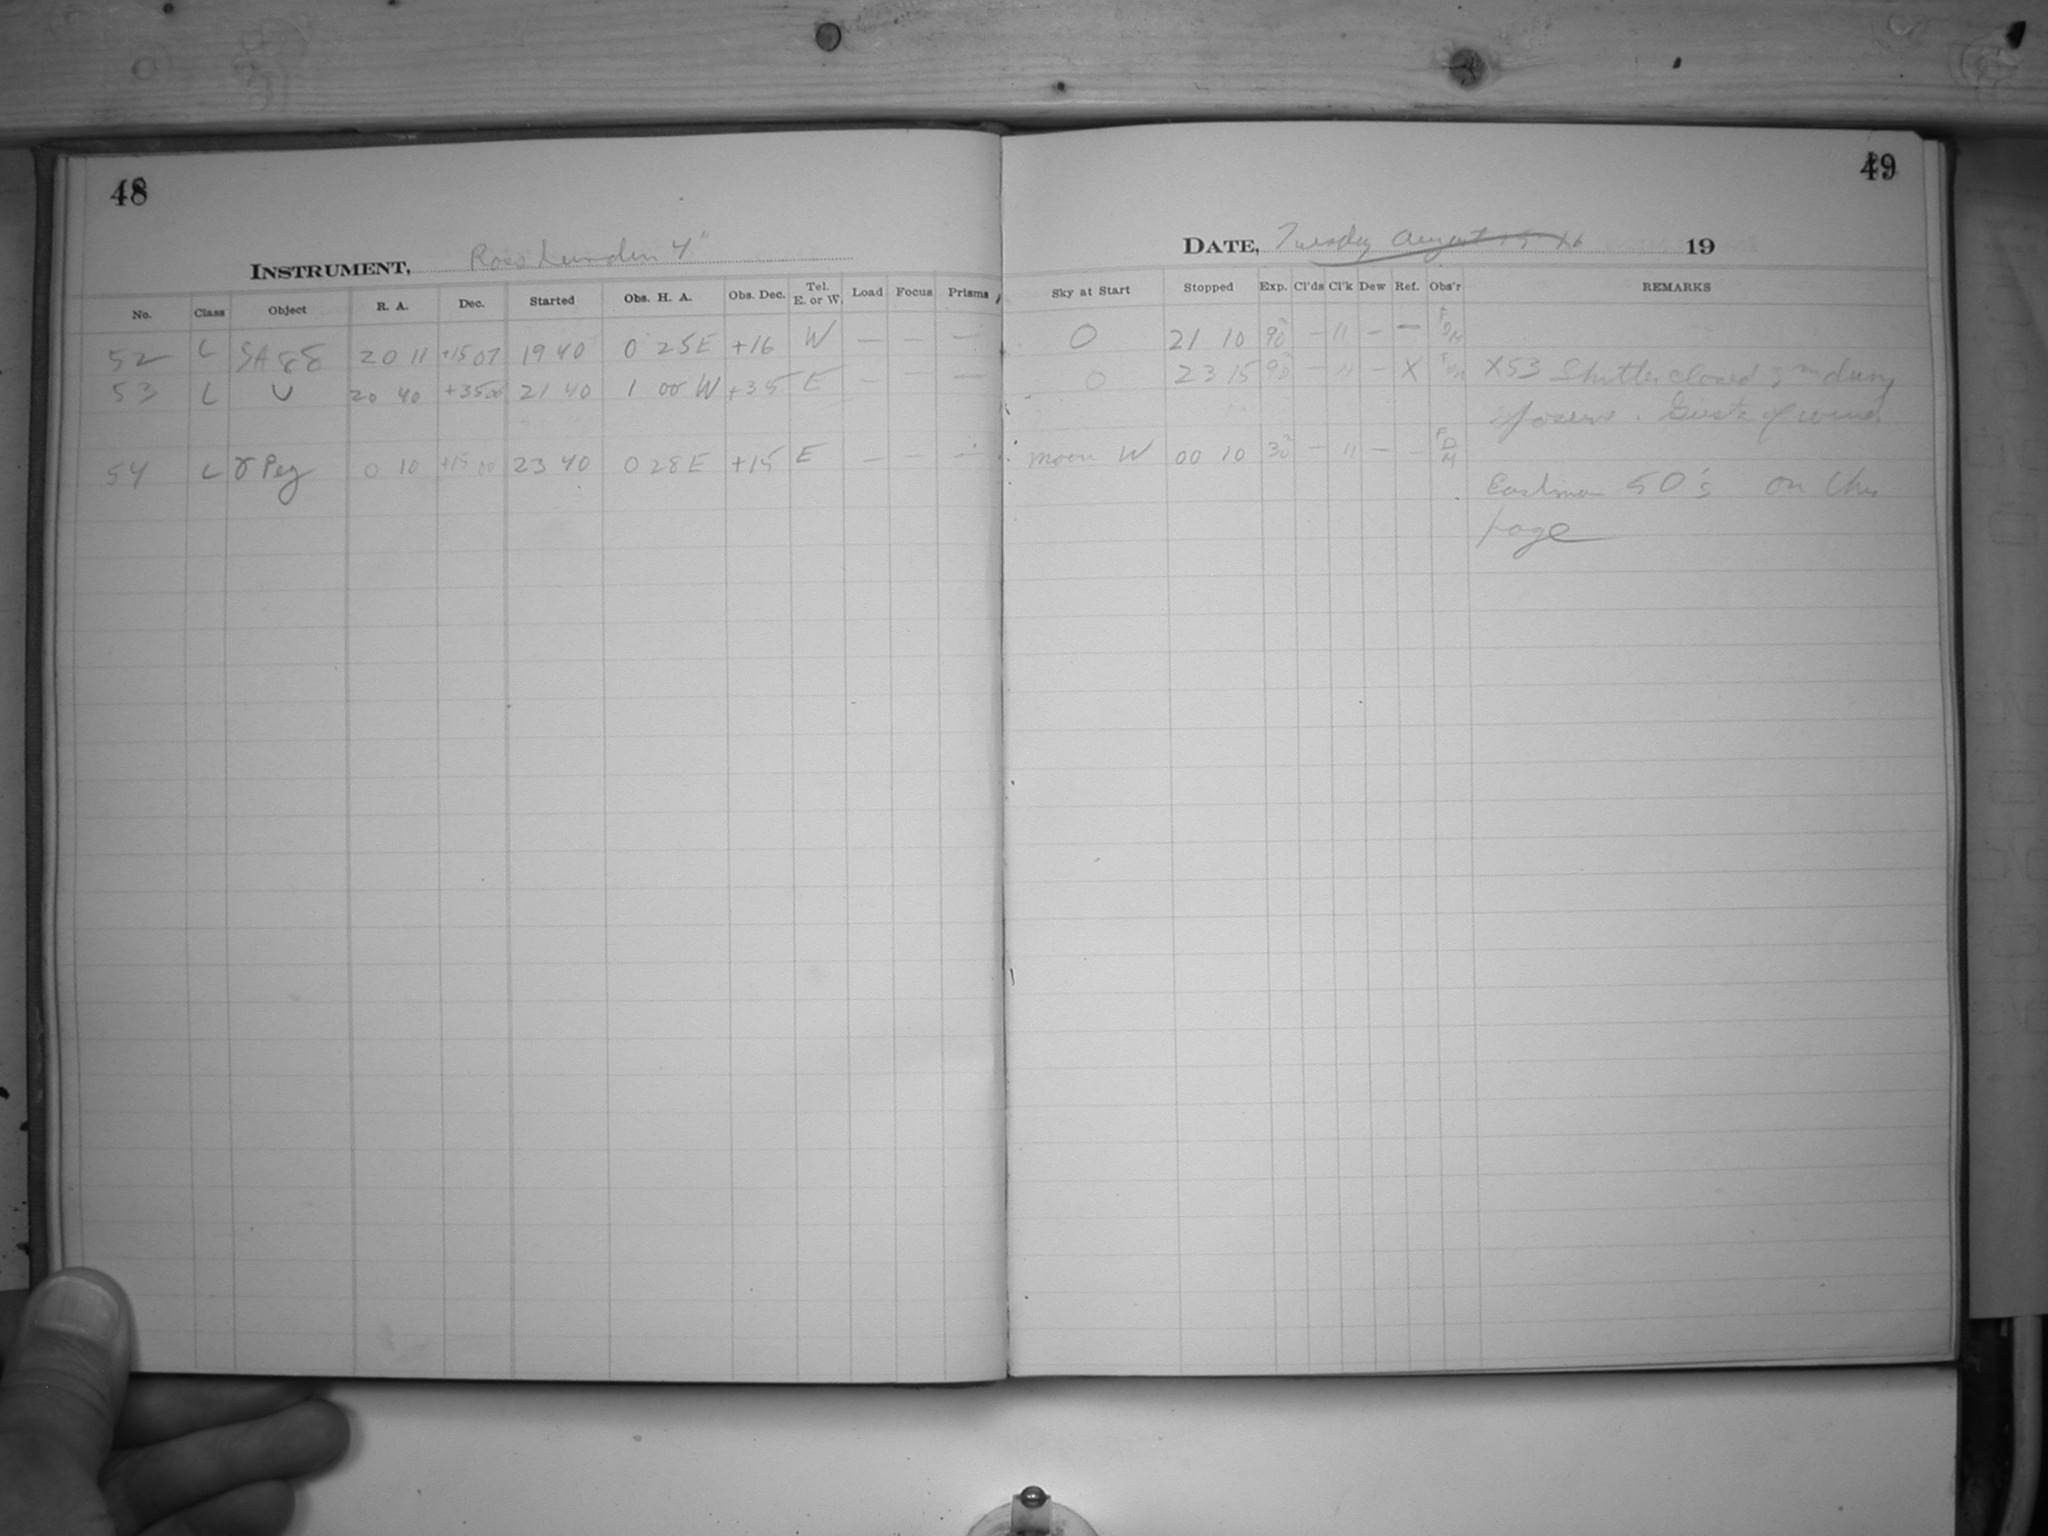 48
INSTRUMENT, Ross Lundin 4"
No. Class Object R. A. Dec. Started Obs. H. A. Obs. Dec. Tel. E. or W. Load Focus Prisms
52 L SA 88 20 11 +15 07 19 40 0 25 E +16 W — — —
53 L U 20 40 +35 00 21 40 1 00 W +35 E — — —
54 L γ Peg 0 10 +15 00 23 40 0 28 E +15 E — — —
49
DATE, Tuesday August 19
Sky at Start Stopped Exp. Cl'ds Cl'k Dew Ref. Obs'r REMARKS
0 21 10 90 — 11 — — FDM
0 23 15 90 — 11 — X FDM X53 Shutter closed 5m during
exposure. Gusts of wind
moon W 00 10 30 — 11 — — FDM
Eastman 50's on this
page